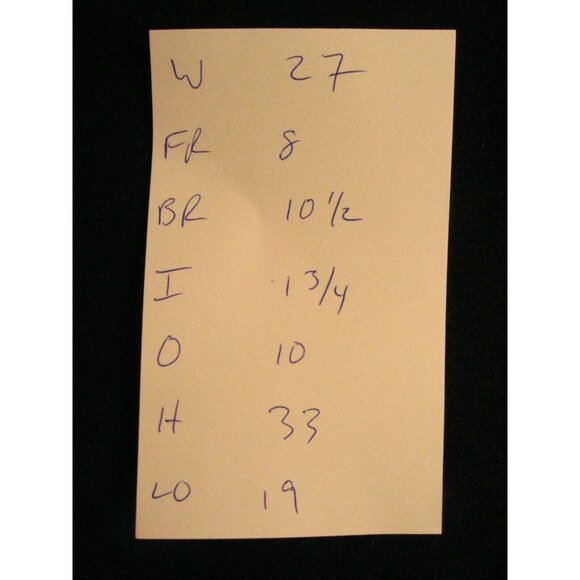 W 27
FR 8
BR 10 1/2
I 1 3/4
O 10
H 33
LO 19